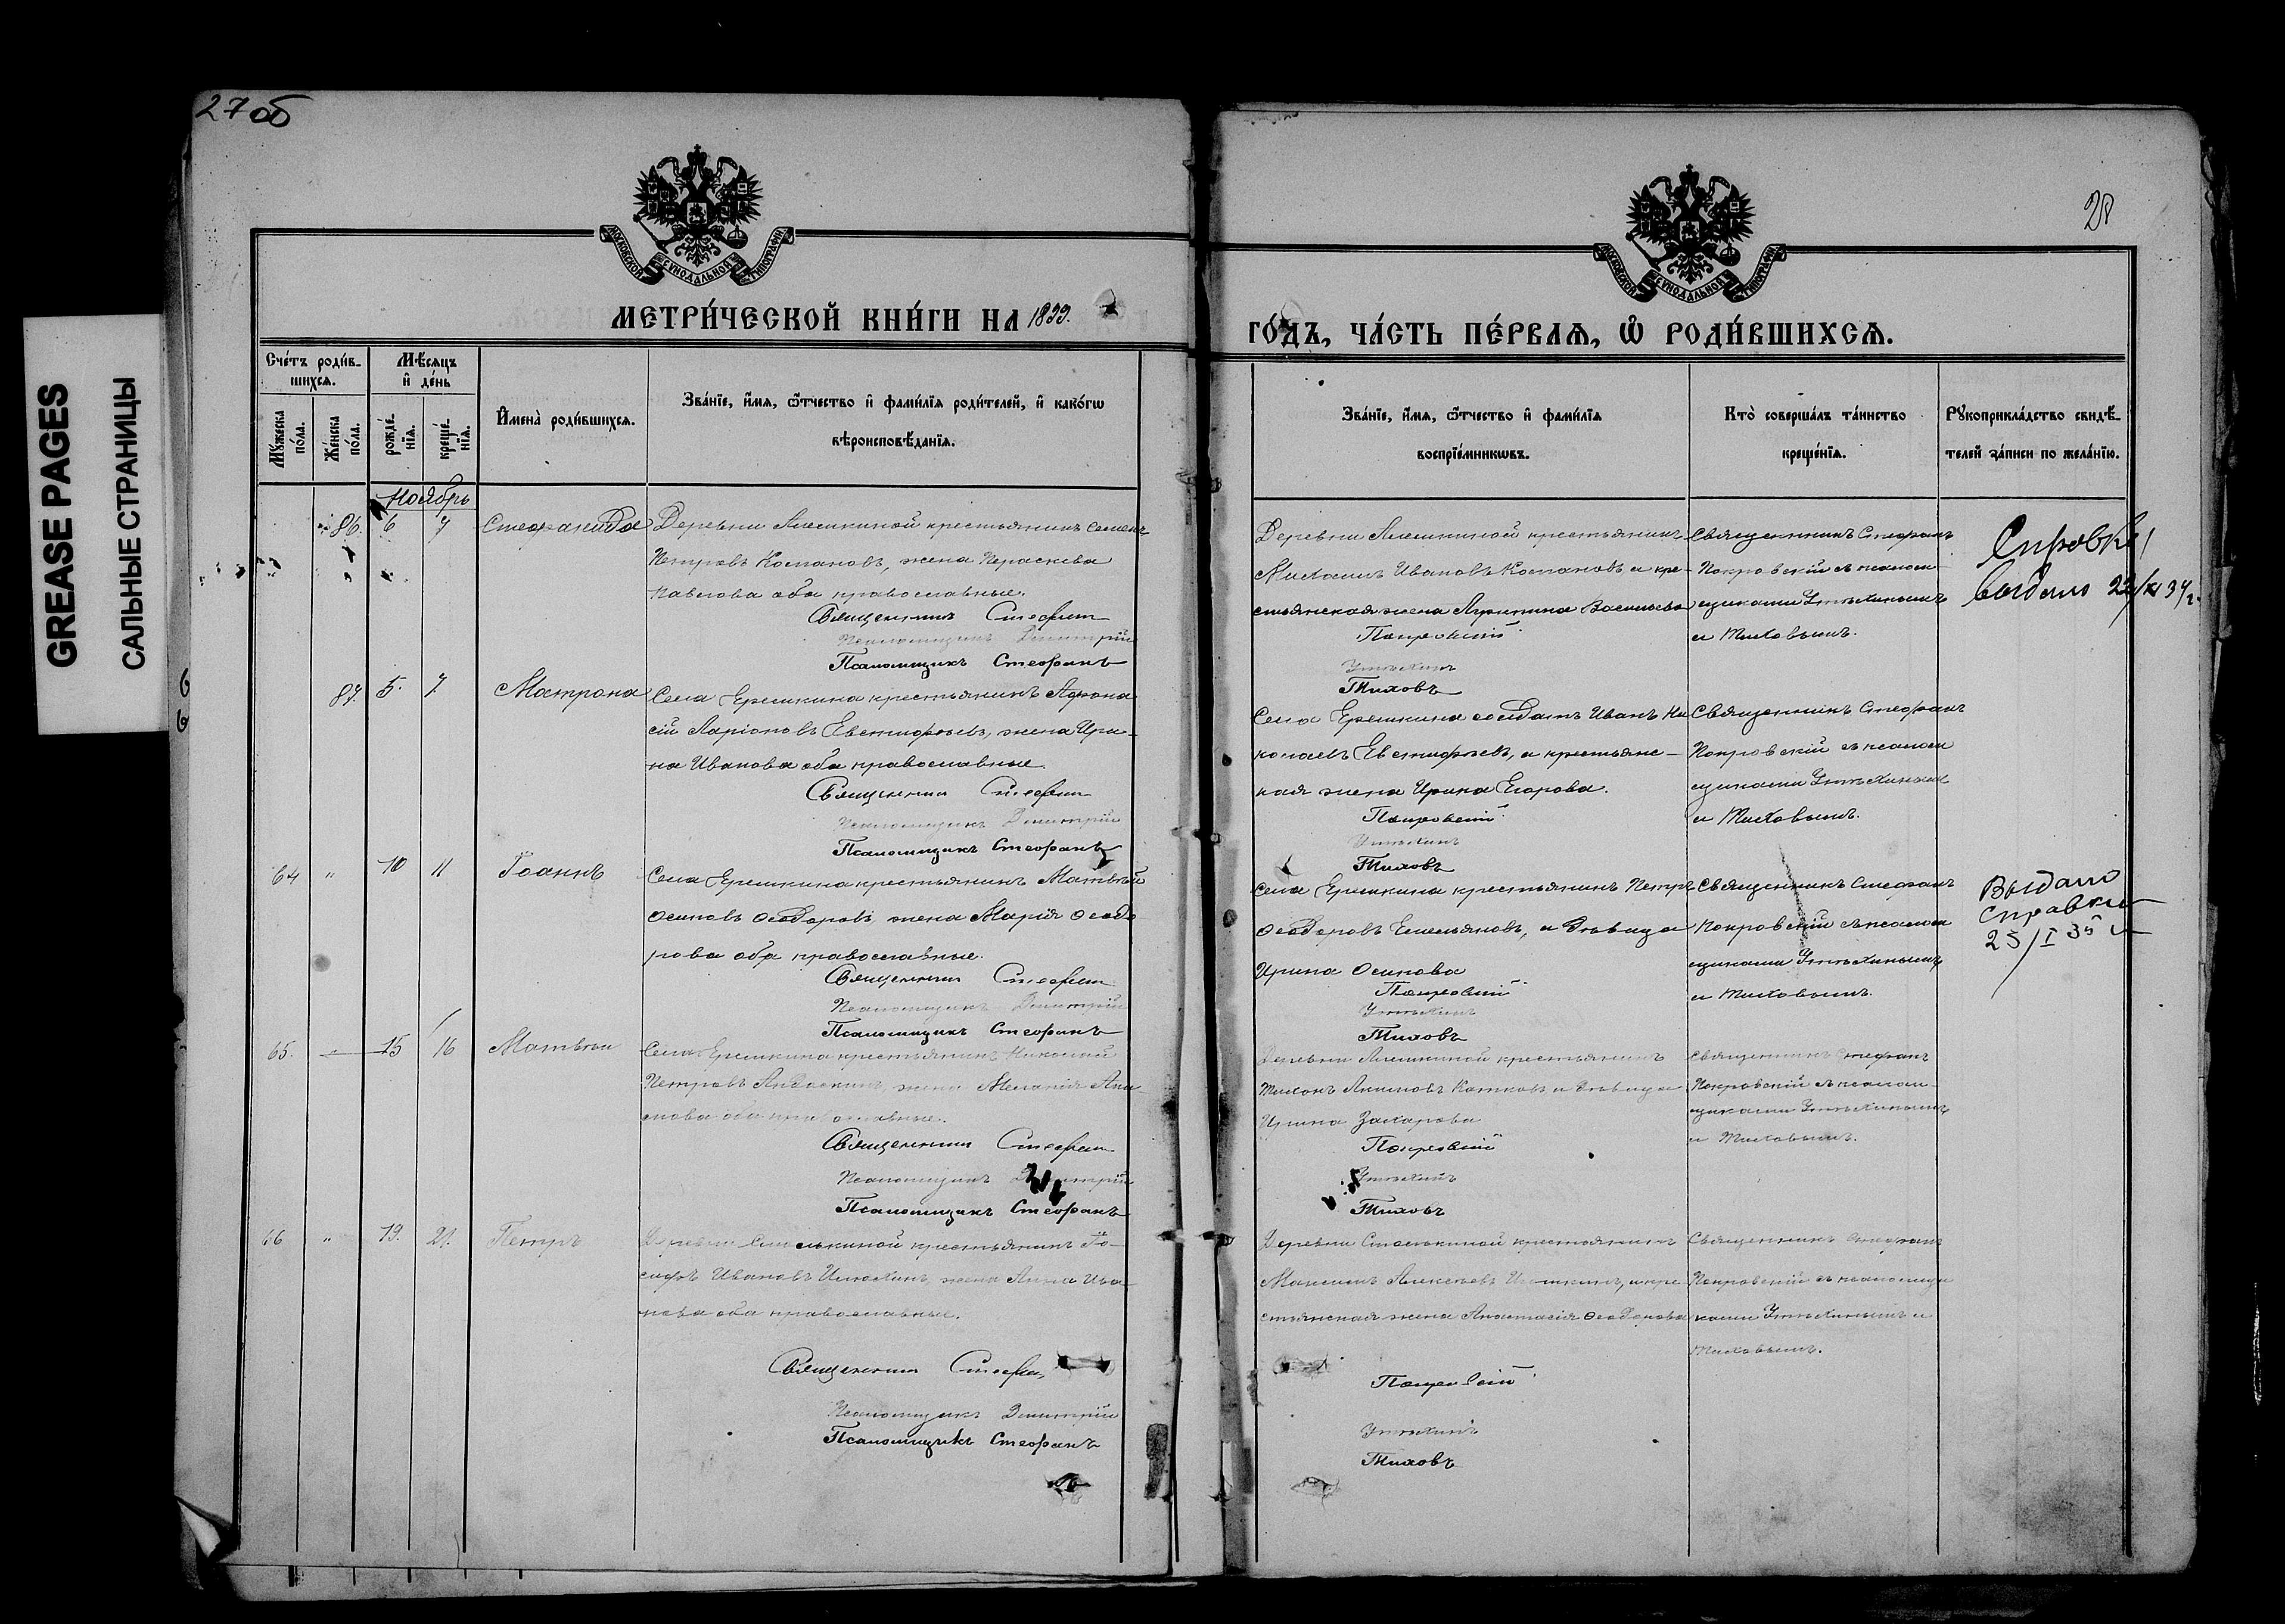 27 об
28
GREASE PAGES
САЛЬНЫЕ СТРАНИЦЫ
МОСКОВСКОЙ СѴНОДАЛЬНОЙ ТИПОГРАФИИ
МОСКОВСКОЙ СѴНОДАЛЬНОЙ ТИПОГРАФИИ
МЕТРИ́ЧЕСКОЙ КНИ́ГИ НА 1899.
ГО́ДЪ, ЧА́СТЬ ПЕ́РВАѦ, Ѽ РОДИ́ВШИХСѦ.
Сче́тъ роди́в-
шихсѧ.
Мꙋ́жеска по́ла.
Же́нска по́ла.
Мѣ́сѧцъ и҆ де́нь
рожде́нїѧ.
креще́нїѧ.
И҆мена̀ роди́вшихсѧ.
Зва́нїе, и҆́мѧ, ѻ҆́тчество и҆ фами́лїѧ роди́телей, и҆ како́гѡ
вѣроисповѣ́данїѧ.
Зва́нїе, и҆́мѧ, ѻ҆́тчество и҆ фами́лїѧ
воспрїе́мникѡвъ.
Кто̀ соверша́лъ та́инство
креще́нїѧ.
Рꙋкоприкла́дство свидѣ́-
телей за́писи по жела́нїю.
Ноябрь
86. 6 7 Стефанида
Деревни Алешкиной крестьянинъ Семенъ
Петровъ Костановъ, жена Параскева
Павлова оба православные.
Священникъ Стефанъ
Псаломщикъ Димитрій
Псаломщикъ Стефанъ
Деревни Алешкиной крестьянинъ
Ивановъ Костановъ и кре-
стьянская жена Агрипина Васильева
Покровскій
Утѣхинъ
Тиховъ
Священникъ Стефанъ
Покровскій съ псалом-
щиками Утѣхинымъ
и Тиховымъ.
Справка
выдана 22/XI 34 г.
87. 5. 7. Матрона
Села Ерешкина крестьянинъ Афона-
сій Ларіоновъ Евстифѣевъ, жена Ири-
на Иванова оба православные.
Священникъ Стефанъ
Псаломщикъ Димитрій
Псаломщикъ Стефанъ
Села Ерешкина солдатъ Иванъ Ни
колаевъ Евстифѣевъ, и крестьянс-
кая жена Ирина Егорова.
Покровскій
Утѣхинъ
Тиховъ
Священникъ Стефанъ
Покровскій съ псалом
щиками Утѣхинымъ
и Тиховымъ.
64 " 10 11 Іоаннъ
Села Ерешкина крестьянинъ Матвѣй
Осиповъ Ѳеодоровъ, жена Марія Ѳеодо
рова оба православные.
Священникъ Стефанъ
Псаломщикъ Димитрій
Псаломщикъ Стефанъ
Села Ерешкина крестьянинъ Петръ
Ѳеодоровъ Емельяновъ, и дѣвица
Ирина Осипова
Покровскій
Утѣхинъ
Тиховъ
Священникъ Стефанъ
Покровскій съ псалом
щиками Утѣхинымъ
и Тиховымъ.
Выдана
справка
25/I 35
65. 15 16 Матвѣй
Села Ерешкина крестьянинъ Николай
Петровъ жена Меланія
оба православные.
Священникъ Стефанъ
Псаломщикъ Димитрій
Псаломщикъ Стефанъ
Деревни Алешкиной крестьянинъ
Тихонъ Акимовъ Катковъ и дѣвица
Ирина Захарова
Покровскій
Утѣхинъ
Тиховъ
Священникъ Стефанъ
Покровскій съ псалом-
щиками Утѣхинымъ
и Тиховымъ.
66 " 19. 21. Петръ
Деревни крестьянинъ Іо-
сифъ Ивановъ Илюхинъ, жена Анна Ива-
нова оба православные.
Священникъ Стефанъ
Псаломщикъ Димитрій
Псаломщикъ Стефанъ
Деревни крестьянинъ
Алексѣевъ и кре-
стьянская жена Анастасія Ѳеодорова
Покровскій
Утѣхинъ
Тиховъ
Священникъ Стефанъ
Покровскій съ псаломщи
ками Утѣхинымъ и
Тиховымъ.